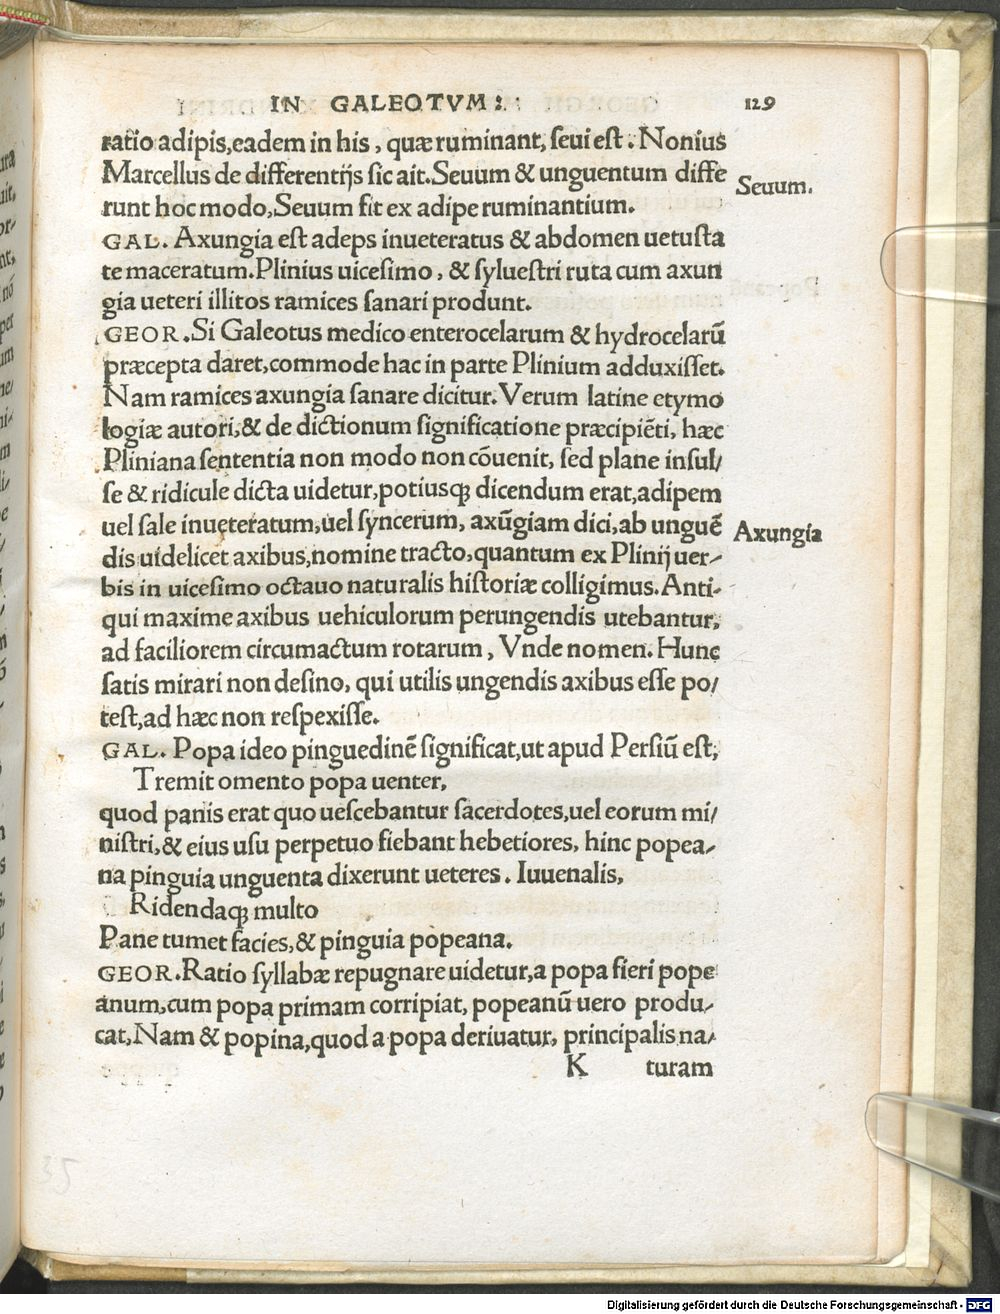 IN GALEOTVM: 129
ratio adipis, eadem in his, quæ ruminant, seui est. Nonius
Marcellus de differentijs sic ait. Seuum & unguentum diffe
runt hoc modo, Seuum fit ex adipe ruminantium.
Seuum.
GAL. Axungia est adeps inueteratus & abdomen uetusta
te maceratum. Plinius uicesimo, & syluestri ruta cum axun
gia ueteri illitos ramices sanari produnt.
GEOR. Si Galeotus medico enterocelarum & hydrocelarū
præcepta daret, commode hac in parte Plinium adduxisset.
Nam ramices axungia sanare dicitur. Verum latine etymo
logiæ autori, & de dictionum significatione præcipiēti, hæc
Pliniana sententia non modo non cōuenit, sed plane insul/
se & ridicule dicta uidetur, potiusq; dicendum erat, adipem
uel sale inueteratum, uel syncerum, axūgiam dici, ab unguē
Axungia
dis uidelicet axibus, nomine tracto, quantum ex Plinij uer/
bis in uicesimo octauo naturalis historiæ colligimus. Anti-
qui maxime axibus uehiculorum perungendis utebantur,
ad faciliorem circumactum rotarum, Vnde nomen. Hunc
satis mirari non desino, qui utilis ungendis axibus esse po/
test, ad hæc non respexisse.
GAL. Popa ideo pinguedinē significat, ut apud Persiū est,
Tremit omento popa uenter,
quod panis erat quo uescebantur sacerdotes, uel eorum mi/
nistri, & eius usu perpetuo fiebant hebetiores, hinc popea/
na pinguia unguenta dixerunt ueteres. Iuuenalis,
Ridendaq; multo
Pane tumet facies, & pinguia popeana.
GEOR. Ratio syllabæ repugnare uidetur, a popa fieri pope
anum, cum popa primam corripiat, popeanū uero produ/
cat, Nam & popina, quod a popa deriuatur, principalis na/
K turam
35
Digitalisierung gefördert durch die Deutsche Forschungsgemeinschaft - DFG